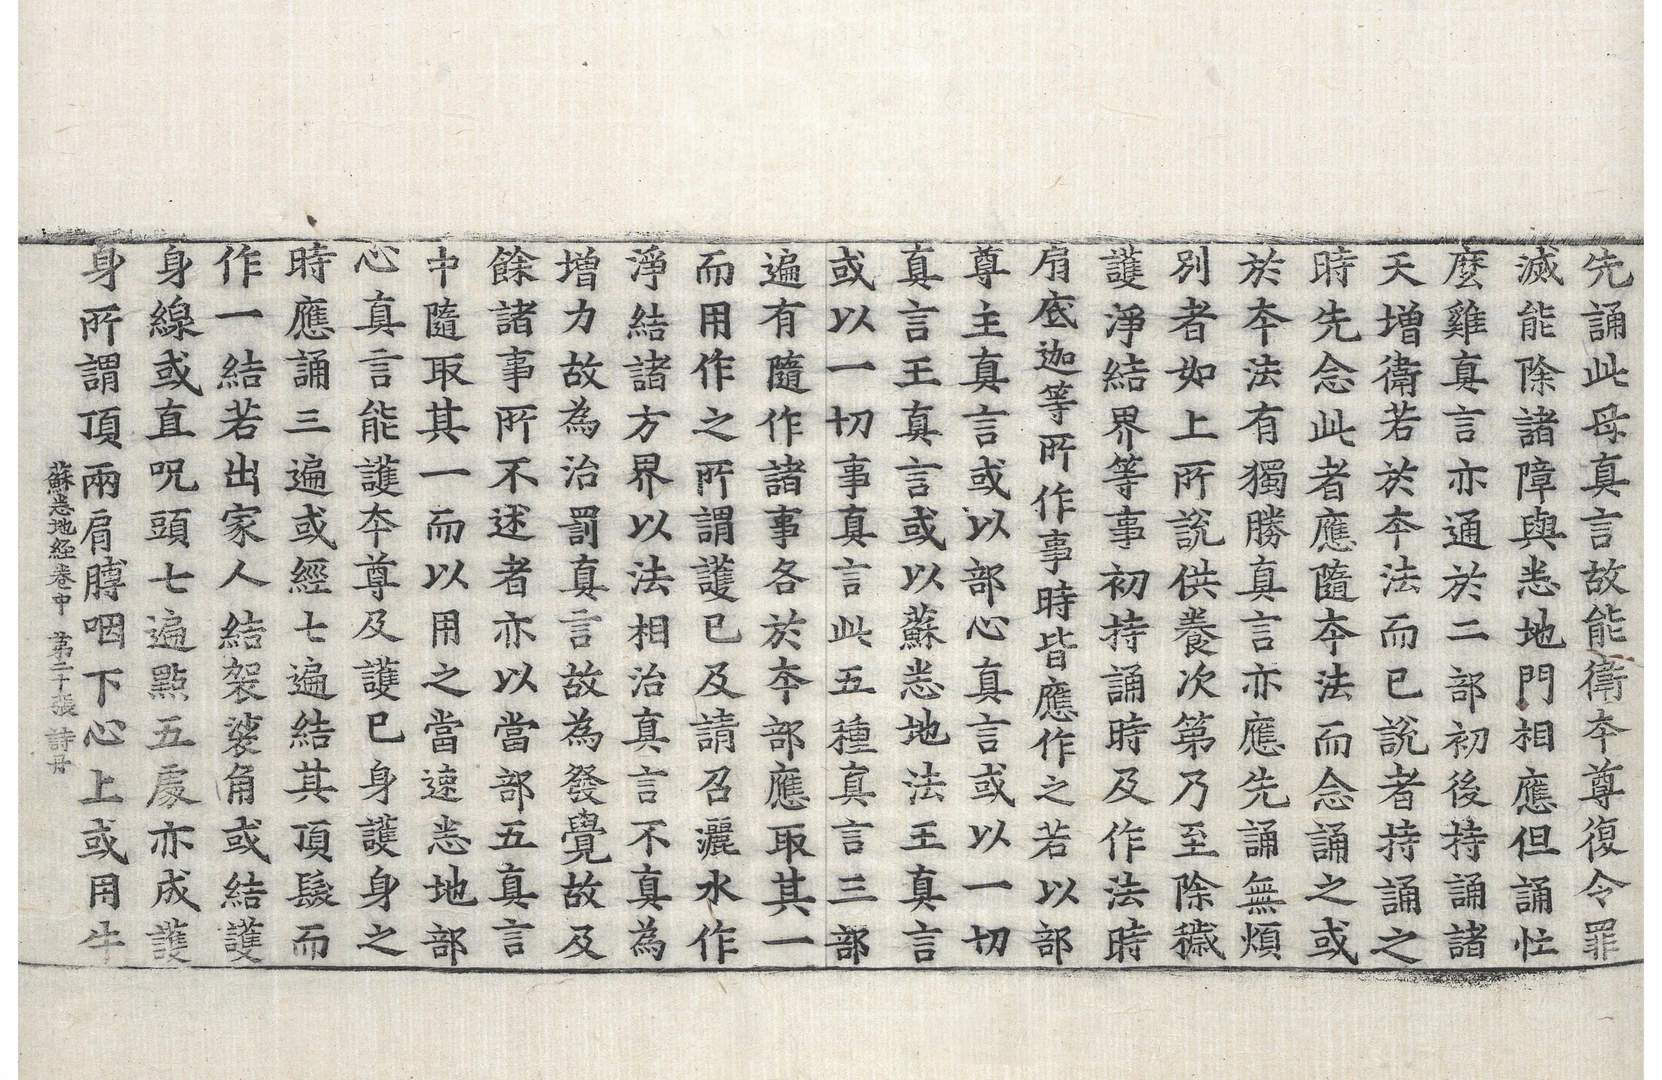 先誦此母真言故能衛夲尊復令罪
滅能除諸障與悉地門相應但誦忙
麼雞真言亦通於二部初後持誦諸
天增衛若於夲法而已說者持誦之
時先念此者應隨夲法而念誦之或
於夲法有獨勝真言亦應先誦無煩
別者如上所說供養次第乃至除穢
護淨結界等事初持誦時及作法時
肩底迦等所作事時皆應作之若以部
尊主真言或以部心真言或以一切
真言王真言或以蘇悉地法王真言
或以一切事真言此五種真言三部
遍有隨作諸事各於夲部應取其一
而用作之所謂護已及請召灑水作
淨結諸方界以法相治真言不真為
增力故為治罰真言故為發覺故及
餘諸事所不述者亦以當部五真言
中隨取其一而以用之當速悉地部
心真言能護夲尊及護已身護身之
時應誦三遍或經七遍結其頂髮而
作一結若出家人結袈裟角或結護
身線或直呪頭七遍點五處亦成護
身所謂頂兩肩膊咽下心上或用牛
蘇悉地經卷中 第二十張 詩丹